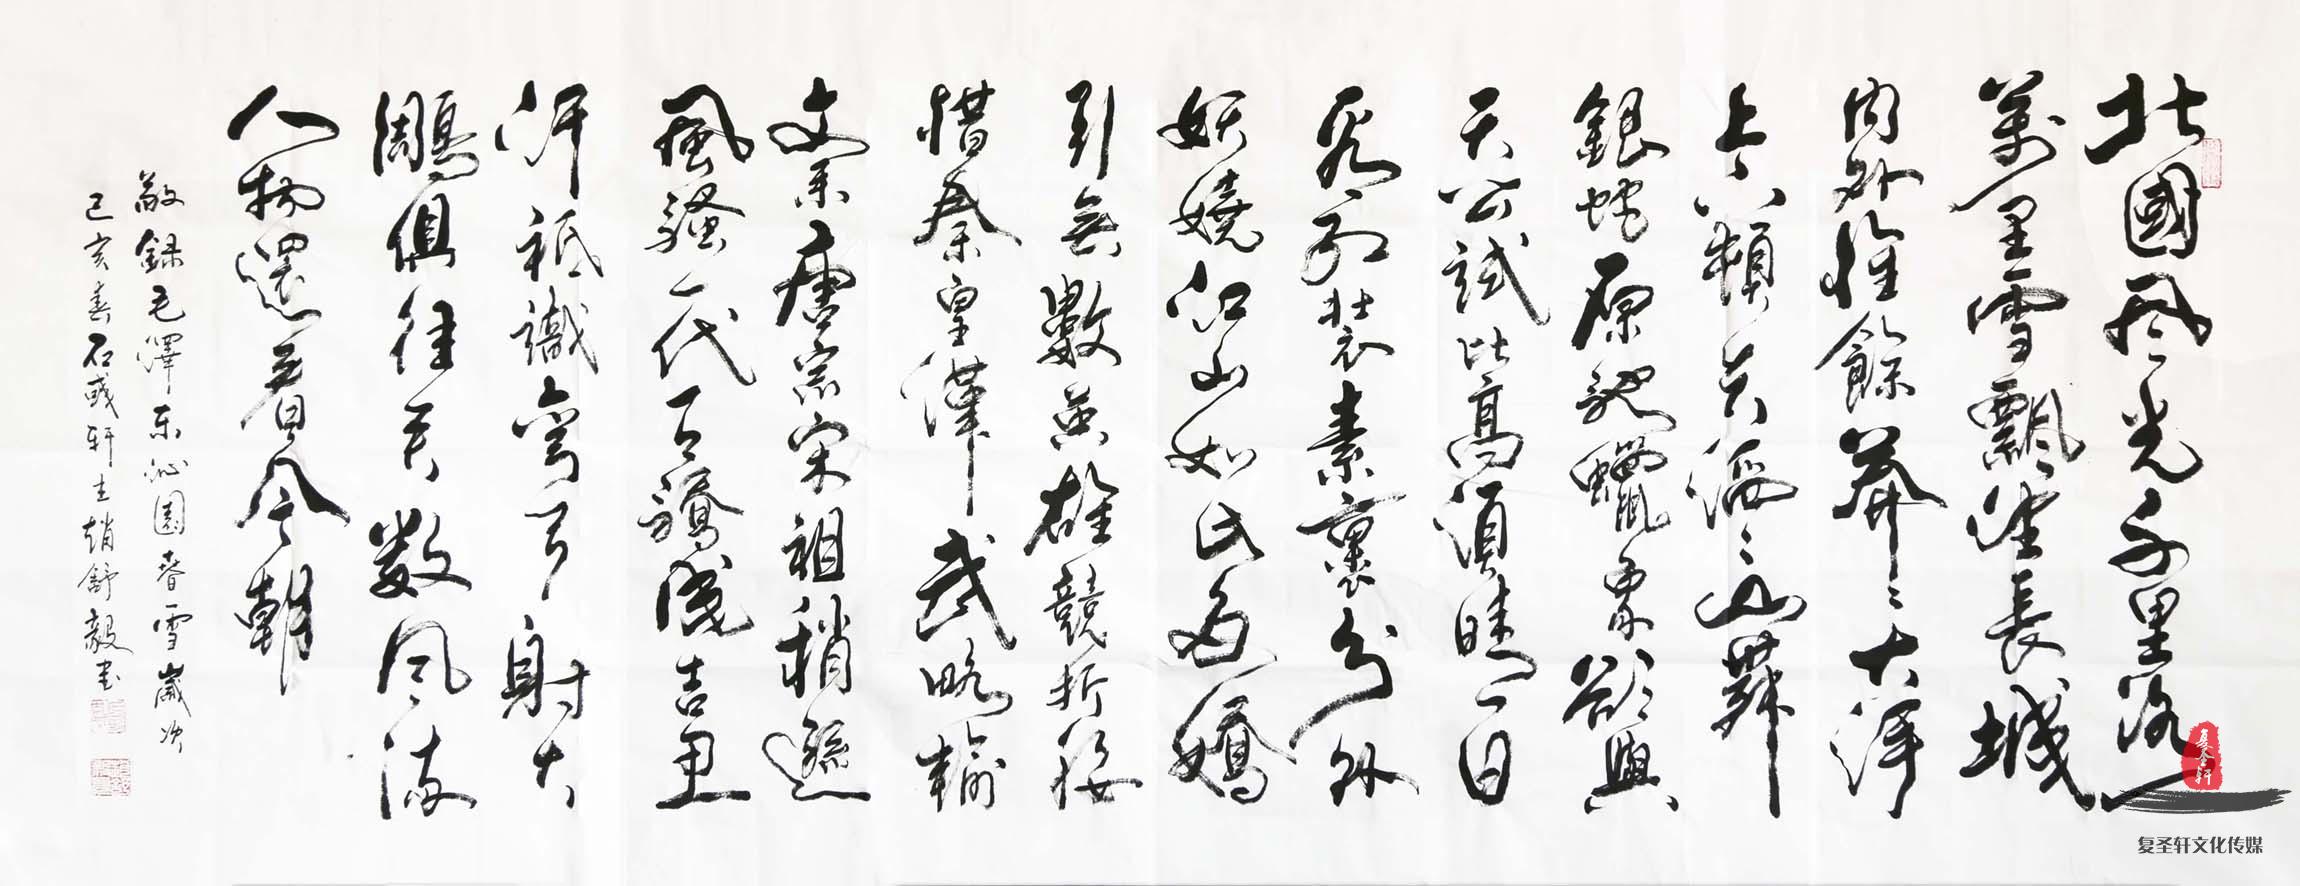 北國风光千里
萬里雪飄望長城
内外惟餘莽〻大河
上下頓失滔〻山舞
銀蛇原馳蠟象欲與
天公試比高須晴一日
看红裝素裹分外
妖嬈江山如此多嬌
引無數英雄競折腰
惜秦皇漢武略輸
文采唐宗宋祖稍遜
風騷一代天驕成吉思
汗祇識彎弓射大
鵰俱往矣数风流
人物還看今朝
敬録毛澤东沁園春雪歲次
己亥春石彧轩主趙舒毅书
复圣轩
复圣轩文化传媒